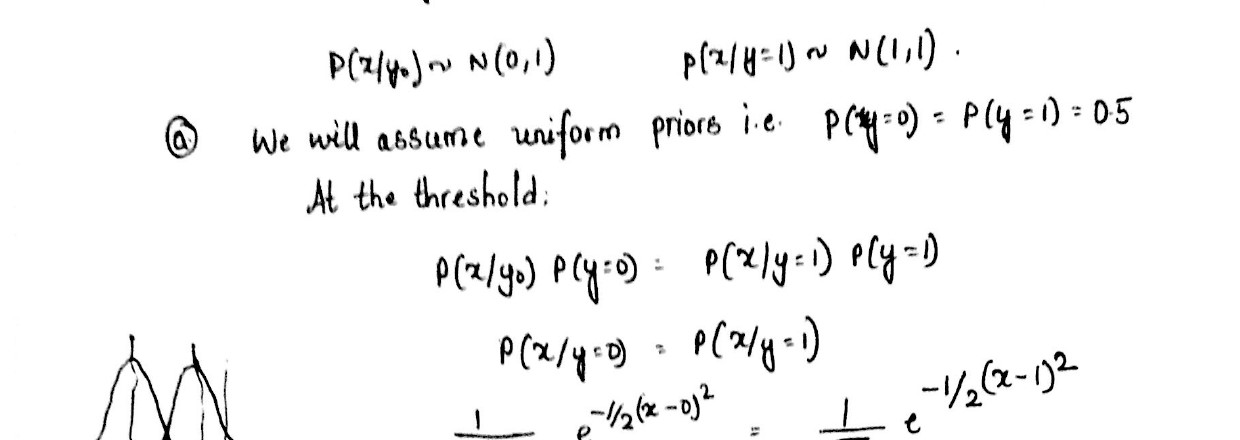 P(x/y₀) ~ N(0,1) p(x/y=1) ~ N(1,1).
ⓐ We will assume uniform priors i.e. P(y=0) = P(y=1) = 0.5
At the threshold:
P(x/y₀) P(y=0) = P(x/y=1) P(y=1)
P(x/y=0) = P(x/y=1)
1 e^{-1/2(x-0)^2} = 1 e^{-1/2(x-1)^2}